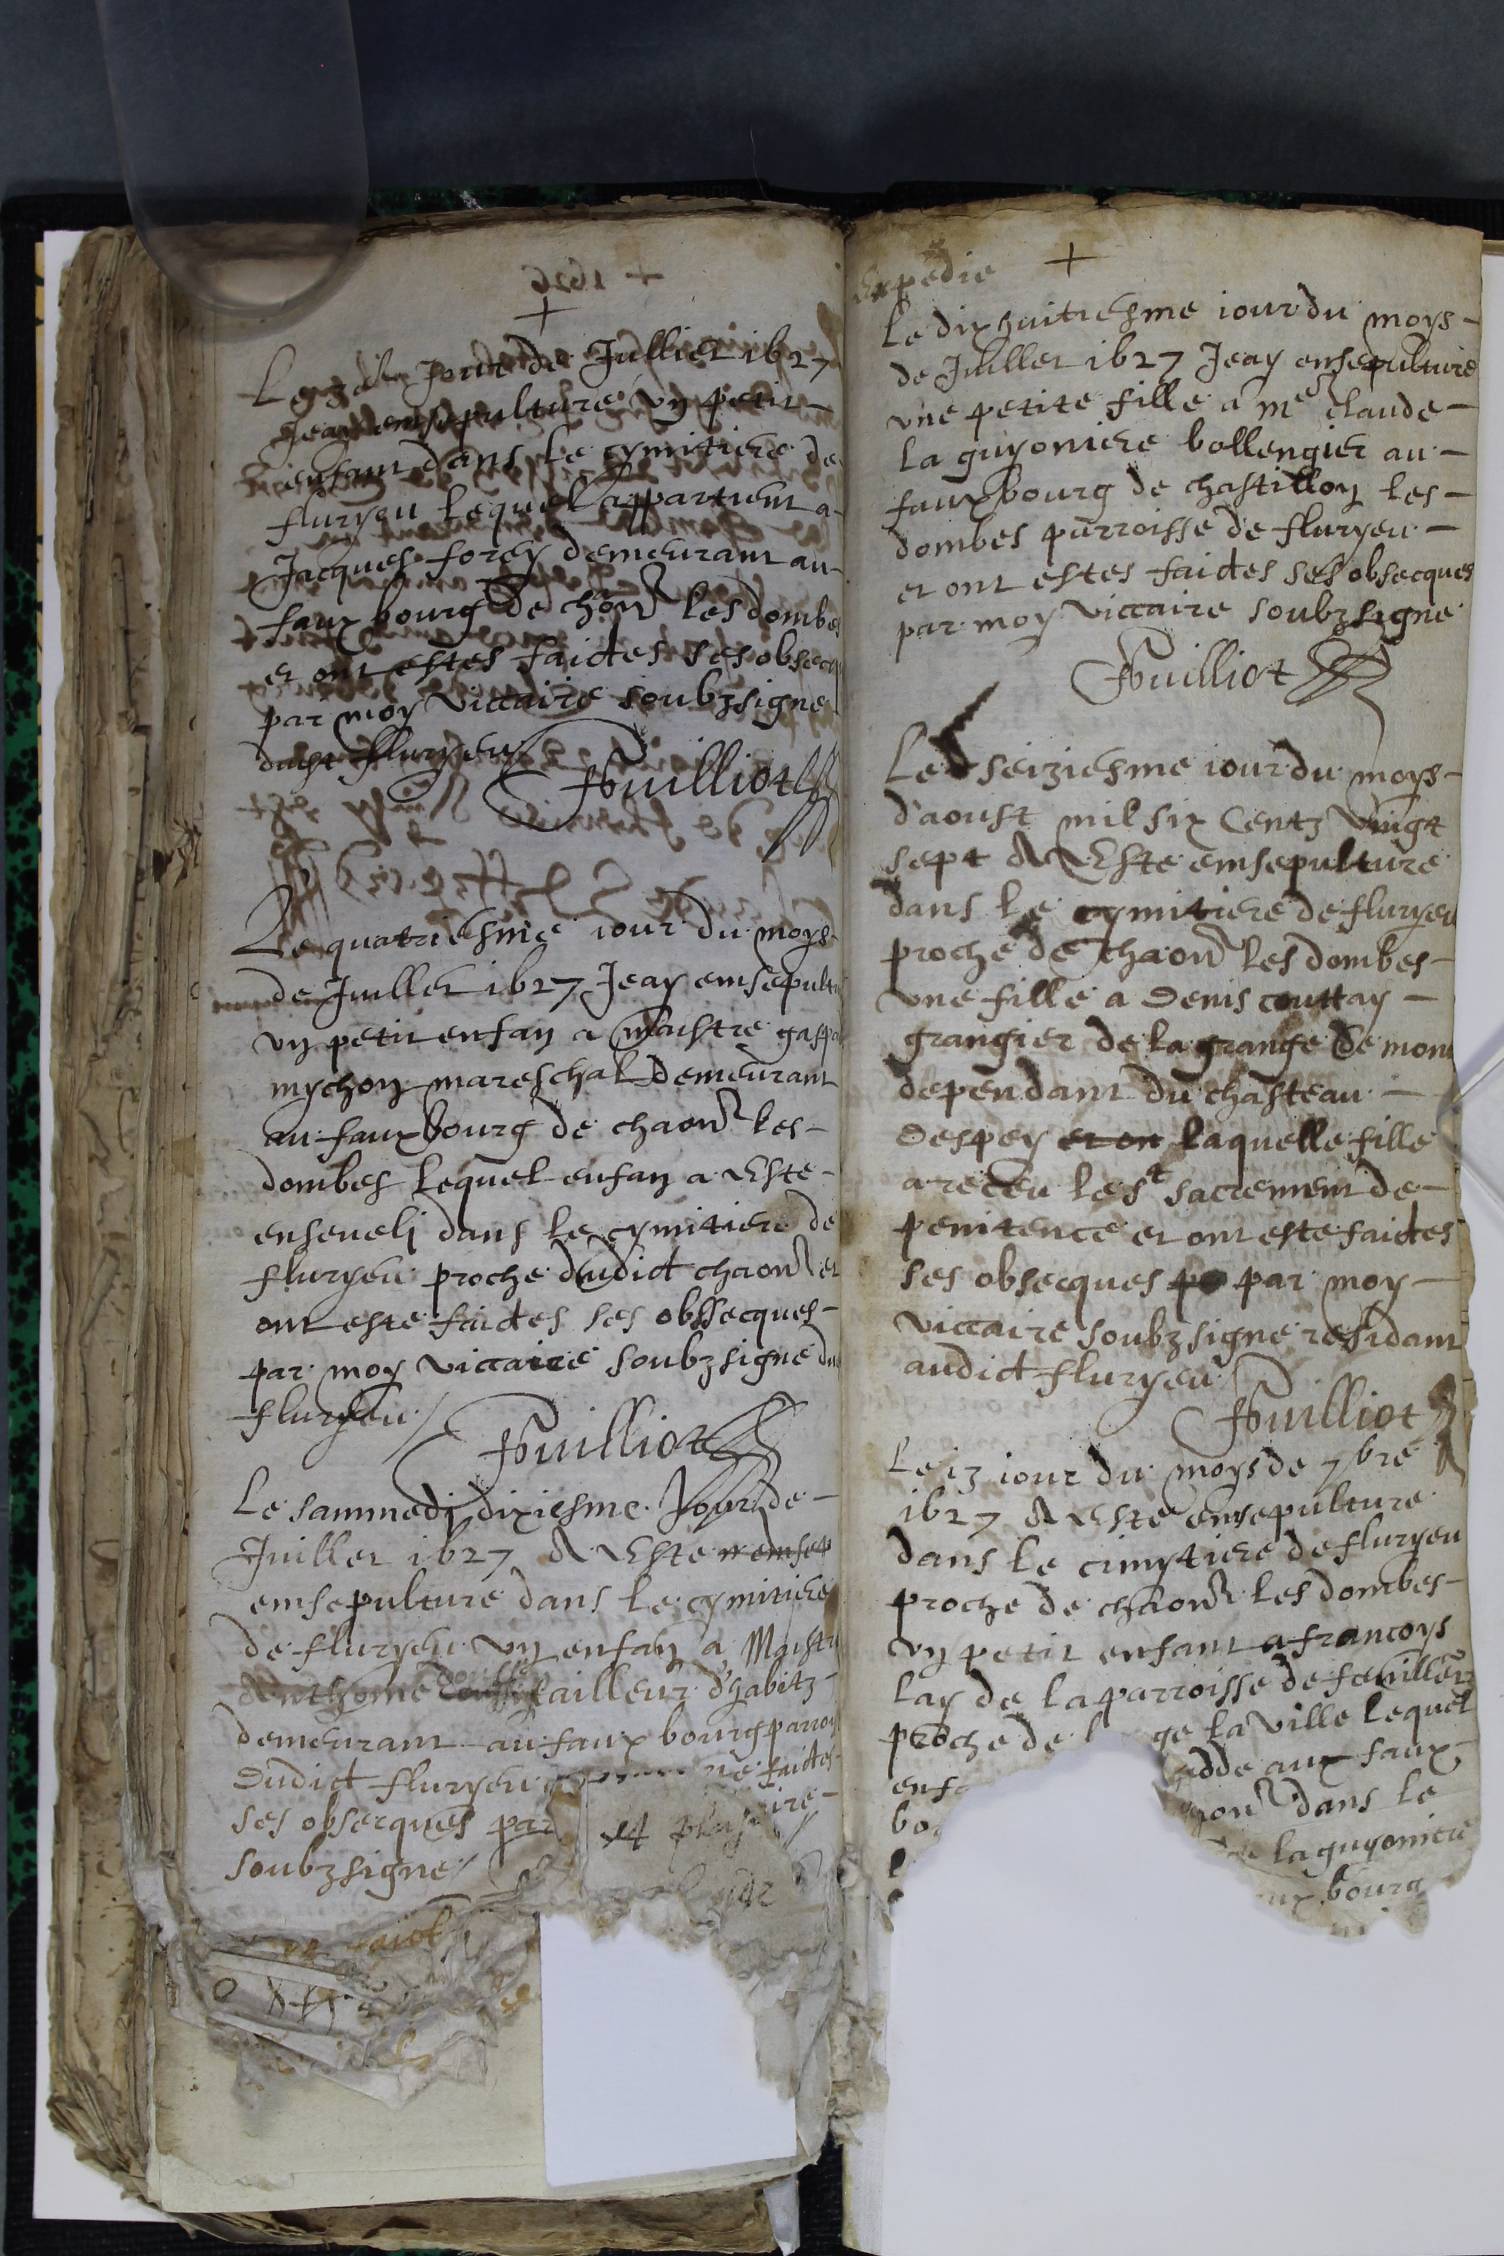 +
Le 3e Jour de Jullier 1627
Jeay emsepulture vy petit
enfant dans le cymitiere de
fluryeu lequel appartient a
Jacques forey demeurant au
faux bourg de chon les dombes
et ont estes faictes ses obsecq
par moy viccaire soubzsigne
dudt fluryeu
Fuilliot
Le quatriesme iour du moys
de Juillet 1627 Jeay emsepultu
vy petit enfan a maistre gaspa
mychon mareschal demeurant
au faux bourg de chaon les
dombes lequel enfan a este
enseueli dans le cymitiere de
fluryeu proche dudict chaon et
ont este faictes ses obssecques
par moy viccaire soubzsigne du
fluryeu
Fuilliot
Le sammedj dixiesme Jour de
Juillet 1627 A este
emsepulture dans le cymitiere
de fluryeu vy enfan a Maistr
Anthoine tailleur d'habitz
demeurant au faux bourg parroy
dudict fluryeu faictes
ses obsecques par ire
soubzsigne
expedie +
Le dixhuitiesme iour du moys
de Juillet 1627 Jeay ensepulture
vne petite fille a me claude
la guyoniere bollengier au
faux bourg de chastilloy les
dombes parroisse de fluryeu
et ont estes faictes ses obsecques
par moy viccaire soubzsigne
Fuilliot
Le seiziesme iour du moys
d'aoust mil six Centz vingt
sept A este emsepulture
dans le cymitiere de fluryeu
proche de chaon les dombes
vne fille a Denis couttay
grangier de la grange de mont
dependant du chasteau
despey et on laquelle fille
a receu le st sacrement de
penitence et ont este faictes
ses obsecques po par moy
viccaire soubzsigne residant
audict fluryeu
Fuilliot
Le 13 iour du moys de 7bre
1627 A este ensepulture
dans le cimytiere de fluryeu
proche de chaon les dombes
vy petit enfant a francoys
lay de la parroisse de
proche de ge la ville lequel
enfa adde aux faux
bo on dans le
la guyoniere
ux bourg